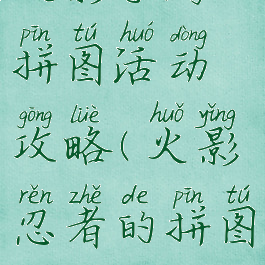 pīn tú huó dòng
拼图活动
gōng lüè huǒ yǐng
攻略(火影
rěn zhě de pīn tú
忍者的拼图